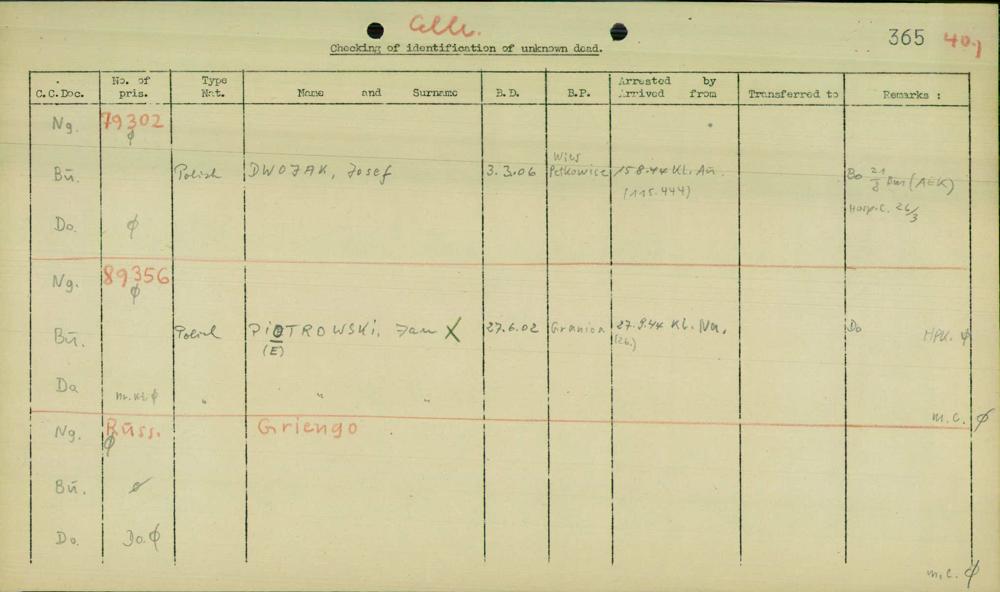 Celle.
365 40.)
Checking of identification of unknown dead.
C.C.Doc. No. of pris. Type Nat. Name and Surname B.D. B.P. Arrested by Arrived from Transferred to Remarks :
Ng. 79302
ø
Bū. Polish DWOJAK, Josef 3.3.06 Wies Petkowice 15.8.44 Kl. Au. Bo 21/8 (AEK)
(115.444)
Hosp.C. 26/3
Do. ø
Ng. 89356
ø
Bū. Polish PiOTROWSKi, Jan X 27.6.02 Granica 27.9.44 Kl. Na. Do MPK. ø
(E) (26.)
Da m.Kl ø " " "
m.C. ø
Ng. Russ. Griengo
ø
Bū. ø
Do. Jo. ø
m.C. ø